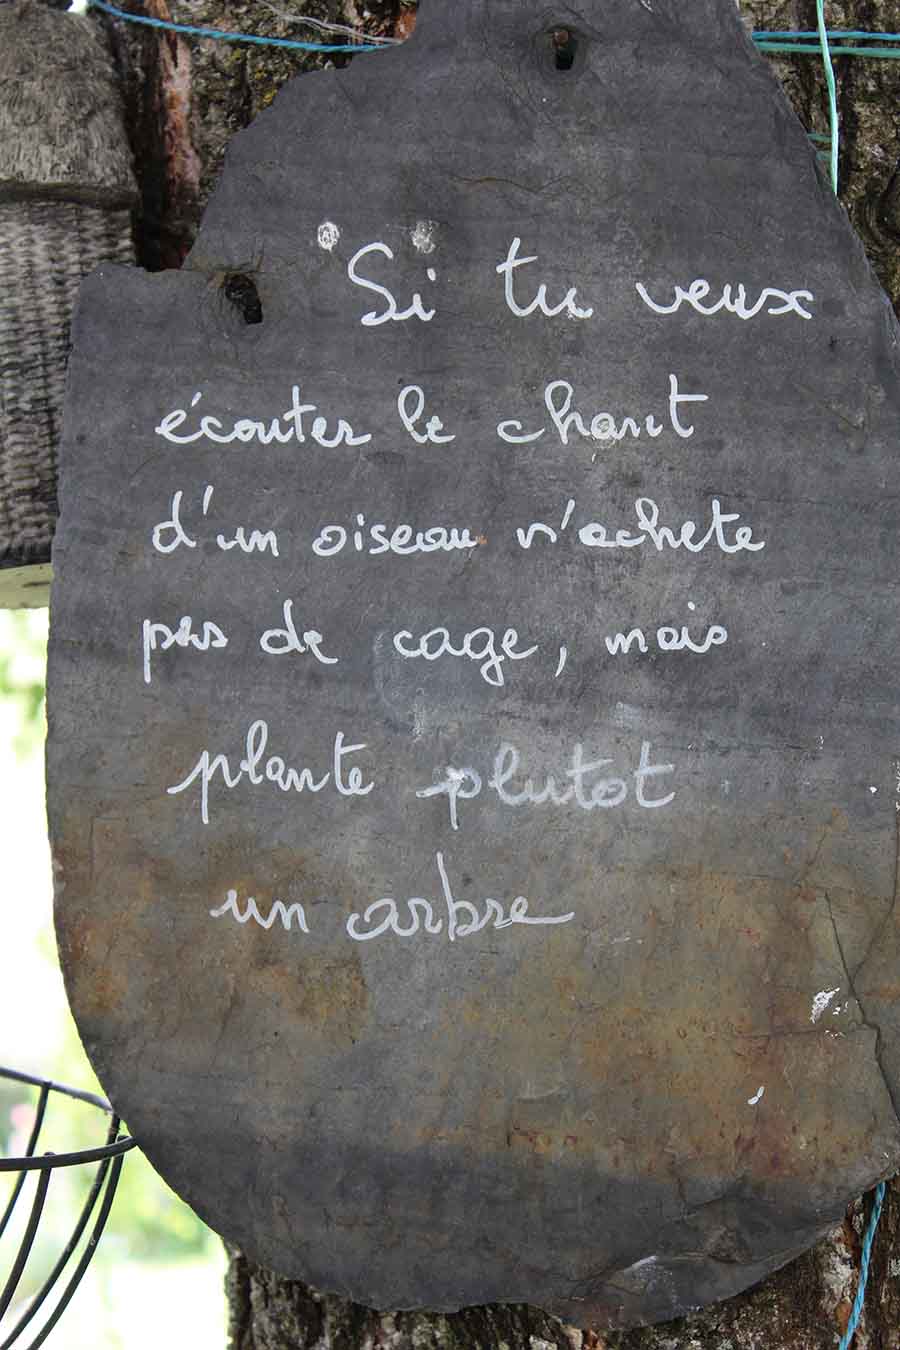 Si tu veux
écouter le chant
d'un oiseau n'achete
pas de cage, mais
plante plutot
un arbre